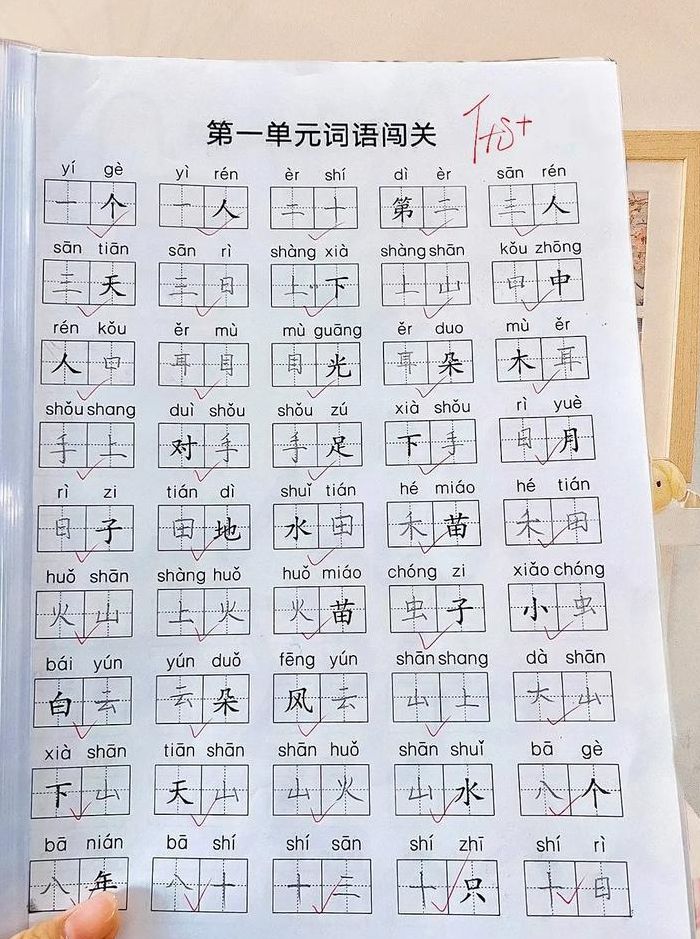 第一单元词语闯关
yí gè yì rén èr shí dì èr sān rén
一个 一人 二十 第二 三人
sān tiān sān rì shàng xià shàng shān kǒu zhōng
三天 三日 上下 上山 口中
rén kǒu ěr mù mù guāng ěr duo mù ěr
人口 耳目 目光 耳朵 木耳
shǒu shang duì shǒu shǒu zú xià shǒu rì yuè
手上 对手 手足 下手 日月
rì zi tián dì shuǐ tián hé miáo hé tián
日子 田地 水田 禾苗 禾田
huǒ shān shàng huǒ huǒ miáo chóng zi xiǎo chóng
火山 上火 火苗 虫子 小虫
bái yún yún duǒ fēng yún shān shang dà shān
白云 云朵 风云 山上 大山
xià shān tiān shān shān huǒ shān shuǐ bā gè
下山 天山 山火 山水 八个
bā nián bā shí shí sān shí zhī shí rì
八年 八十 十三 十只 十日